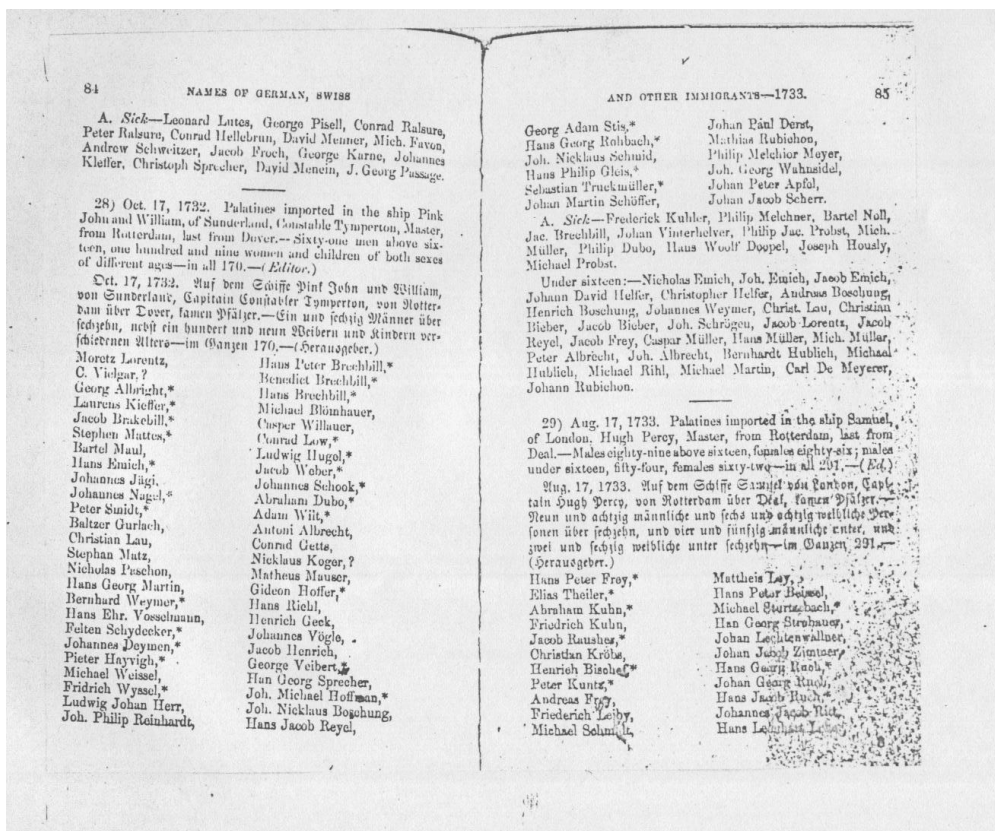 84
NAMES OF GERMAN, SWISS
A. Sick—Leonard Lutes, George Pisell, Conrad Ralsure,
Peter Ralsure, Conrad Hellebrun, David Menner, Mich. Favon,
Andrew Schweitzer, Jacob Froch, George Karne, Johannes
Kleffer, Christoph Sprecher, David Monein, J. Georg Passage.
28) Oct. 17, 1732. Palatines imported in the ship Pink
John and William, of Sunderland, Constable Tymperton, Master,
from Rotterdam, last from Dover.—Sixty-one men above six-
teen, one hundred and nine women and children of both sexes
of different ages—in all 170.—(Editor.)
Oct. 17, 1732. Auf dem Schiffe Pink John und William,
von Sunderland, Capitain Constabler Tymperton, von Rotter-
dam über Dover, kamen Pfälzer.—Ein und sechzig Männer über
sechzehn, nebst ein hundert und neun Weibern und Kindern ver-
schiedenen Alters—im Ganzen 170.—(Herausgeber.)
Moretz Lorentz,
C. Vielgar.?
Georg Albright,*
Laurens Kieffer,*
Jacob Brakebill,*
Stephen Mattes,*
Bartel Maul,
Hans Emich,*
Johannes Jägi,
Johannes Nagel,*
Peter Smidt,*
Baltzer Gurlach,
Christian Lau,
Stephan Matz,
Nicholas Paschon,
Hans Georg Martin,
Bernhard Weymer,*
Hans Ehr. Vosselmann,
Feiten Schydecker,*
Johannes Deymen,*
Pieter Hayvigh,*
Michael Weissel,
Fridrich Wyssel,*
Ludwig Johan Herr,
Joh. Philip Reinhardt,
Hans Peter Brechbill,*
Benedict Brechbill,*
Hans Brechbill,*
Michael Blömhauer,
Casper Willauer,
Conrad Low,*
Ludwig Hugol,*
Jacob Weber,*
Johannes Schook,*
Abraham Dubo,*
Adam Wilt,*
Antoni Albrecht,
Conrad Getts,
Nicklaus Koger,?
Matheus Mauser,
Gideon Hoffer,*
Hans Riehl,
Henrich Geck,
Johannes Vögle,
Jacob Henrich,
George Veibert,*
Han Georg Sprecher,
Joh. Michael Hoffman,*
Joh. Nicklaus Boschung,
Hans Jacob Reyel,
AND OTHER IMMIGRANTS—1733.
85
Georg Adam Stis,*
Hans Georg Rohbach,*
Joh. Nicklaus Schmid,
Hans Philip Gleis,*
Sebastian Truckmüller,*
Johan Martin Schöffer,
Johan Paul Derst,
Mathias Rubichon,
Philip Melchior Meyer,
Joh. Georg Wahnsidel,
Johan Peter Apfel,
Johan Jacob Scherr.
A. Sick—Frederick Kuhler, Philip Melchner, Bartel Noll,
Jac. Brechbill, Johan Vinterhelver, Philip Jac. Probst, Mich.
Müller, Philip Dubo, Haus Woolf Doppel, Joseph Hously,
Michael Probst.
Under sixteen:—Nicholas Emich, Joh. Emich, Jacob Emich,
Johann David Helfer, Christopher Helfer, Andreas Boschung,
Henrich Boschung, Johannes Weymer, Christ. Lau, Christian
Bieber, Jacob Bieber, Joh. Schrögen, Jacob Lorentz, Jacob
Reyel, Jacob Frey, Caspar Müller, Hans Müller, Mich. Müller,
Peter Albrecht, Joh. Albrecht, Bernhardt Hublich, Michael
Hublich, Michael Rihl, Michael Martin, Carl De Meyerer,
Johann Rubichon.
29) Aug. 17, 1733. Palatines imported in the ship Samuel,
of London, Hugh Percy, Master, from Rotterdam, last from
Deal.—Males eighty-nine above sixteen, females eighty-six; males
under sixteen, fifty-four, females sixty-two—in all 291.—(Ed.)
Aug. 17, 1733. Auf dem Schiffe Samuel von London, Capi-
tain Hugh Percy, von Rotterdam über Deal, kamen Pfälzer.—
Neun und achtzig männliche und sechs und achtzig weibliche Per-
sonen über sechzehn, und vier und fünfzig männliche unter, und
zwei und sechzig weibliche unter sechzehn—im Ganzen 291.—
(Herausgeber.)
Hans Peter Frey,*
Elias Theiler,*
Abraham Kuhn,*
Friedrich Kuhn,
Jacob Raushes,*
Christian Kröbs,
Henrich Bischef*
Peter Kuntz,*
Andreas Frey,
Friederich Leiby,
Michael Schmidt,
Mattheis Ley,
Hans Peter Beissel,
Michael Sturtzebach,*
Han Georg Strohauer,
Johan Lechtenwallner,
Johan Jacob Zimmer,
Hans Georg Ruch,*
Johan Georg Ruch,
Hans Jacob Ruch,*
Johannes Jacob Ritt,
Hans
8